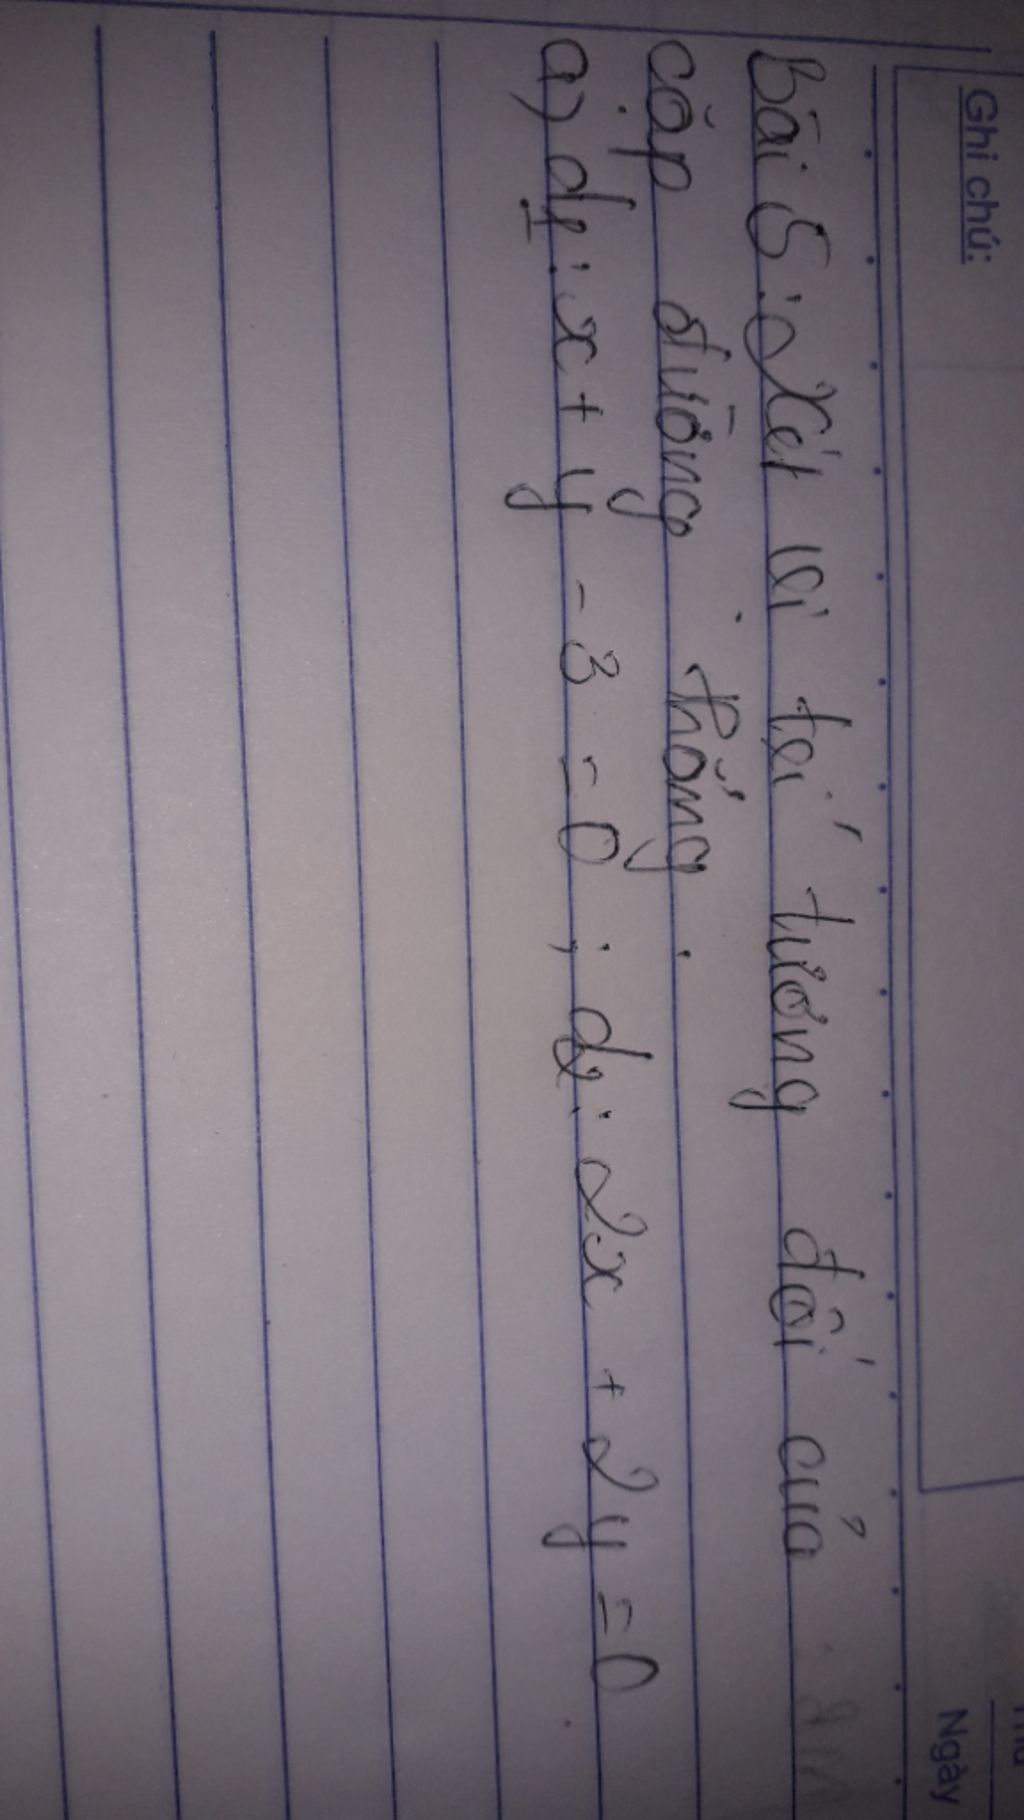 Ghi chú:
Ngày
Bài 5: Xét vị trí tương đối của
cặp đường thẳng.
a) d1: x + y - 3 = 0 ; d2: 2x + 2y = 0